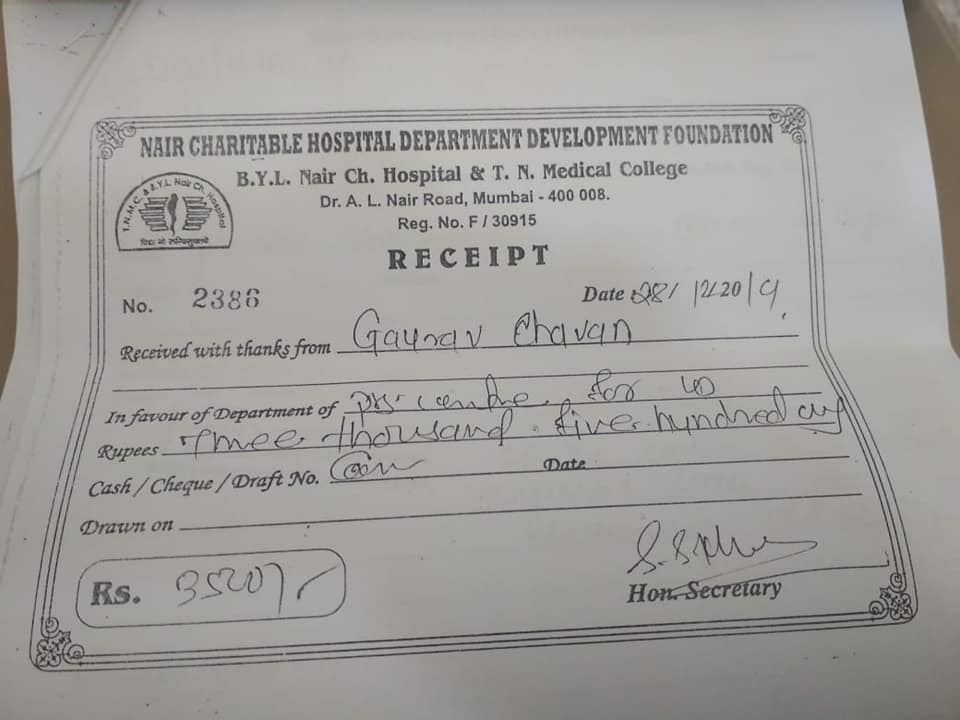 NAIR CHARITABLE HOSPITAL DEPARTMENT DEVELOPMENT FOUNDATION
B.Y.L. Nair Ch. Hospital & T. N. Medical College
T.N.M.C. & B.Y.L. Nair Ch. Hospital
Dr. A. L. Nair Road, Mumbai - 400 008.
Reg. No. F / 30915
RECEIPT
No. 2386 Date 28/12/2019
Received with thanks from Gaurav Chavan
In favour of Department of centre. for
Rupees Three thousand. five hundred only
Cash / Cheque / Draft No. Date
Drawn on
Rs. 3500/-
Hon. Secretary